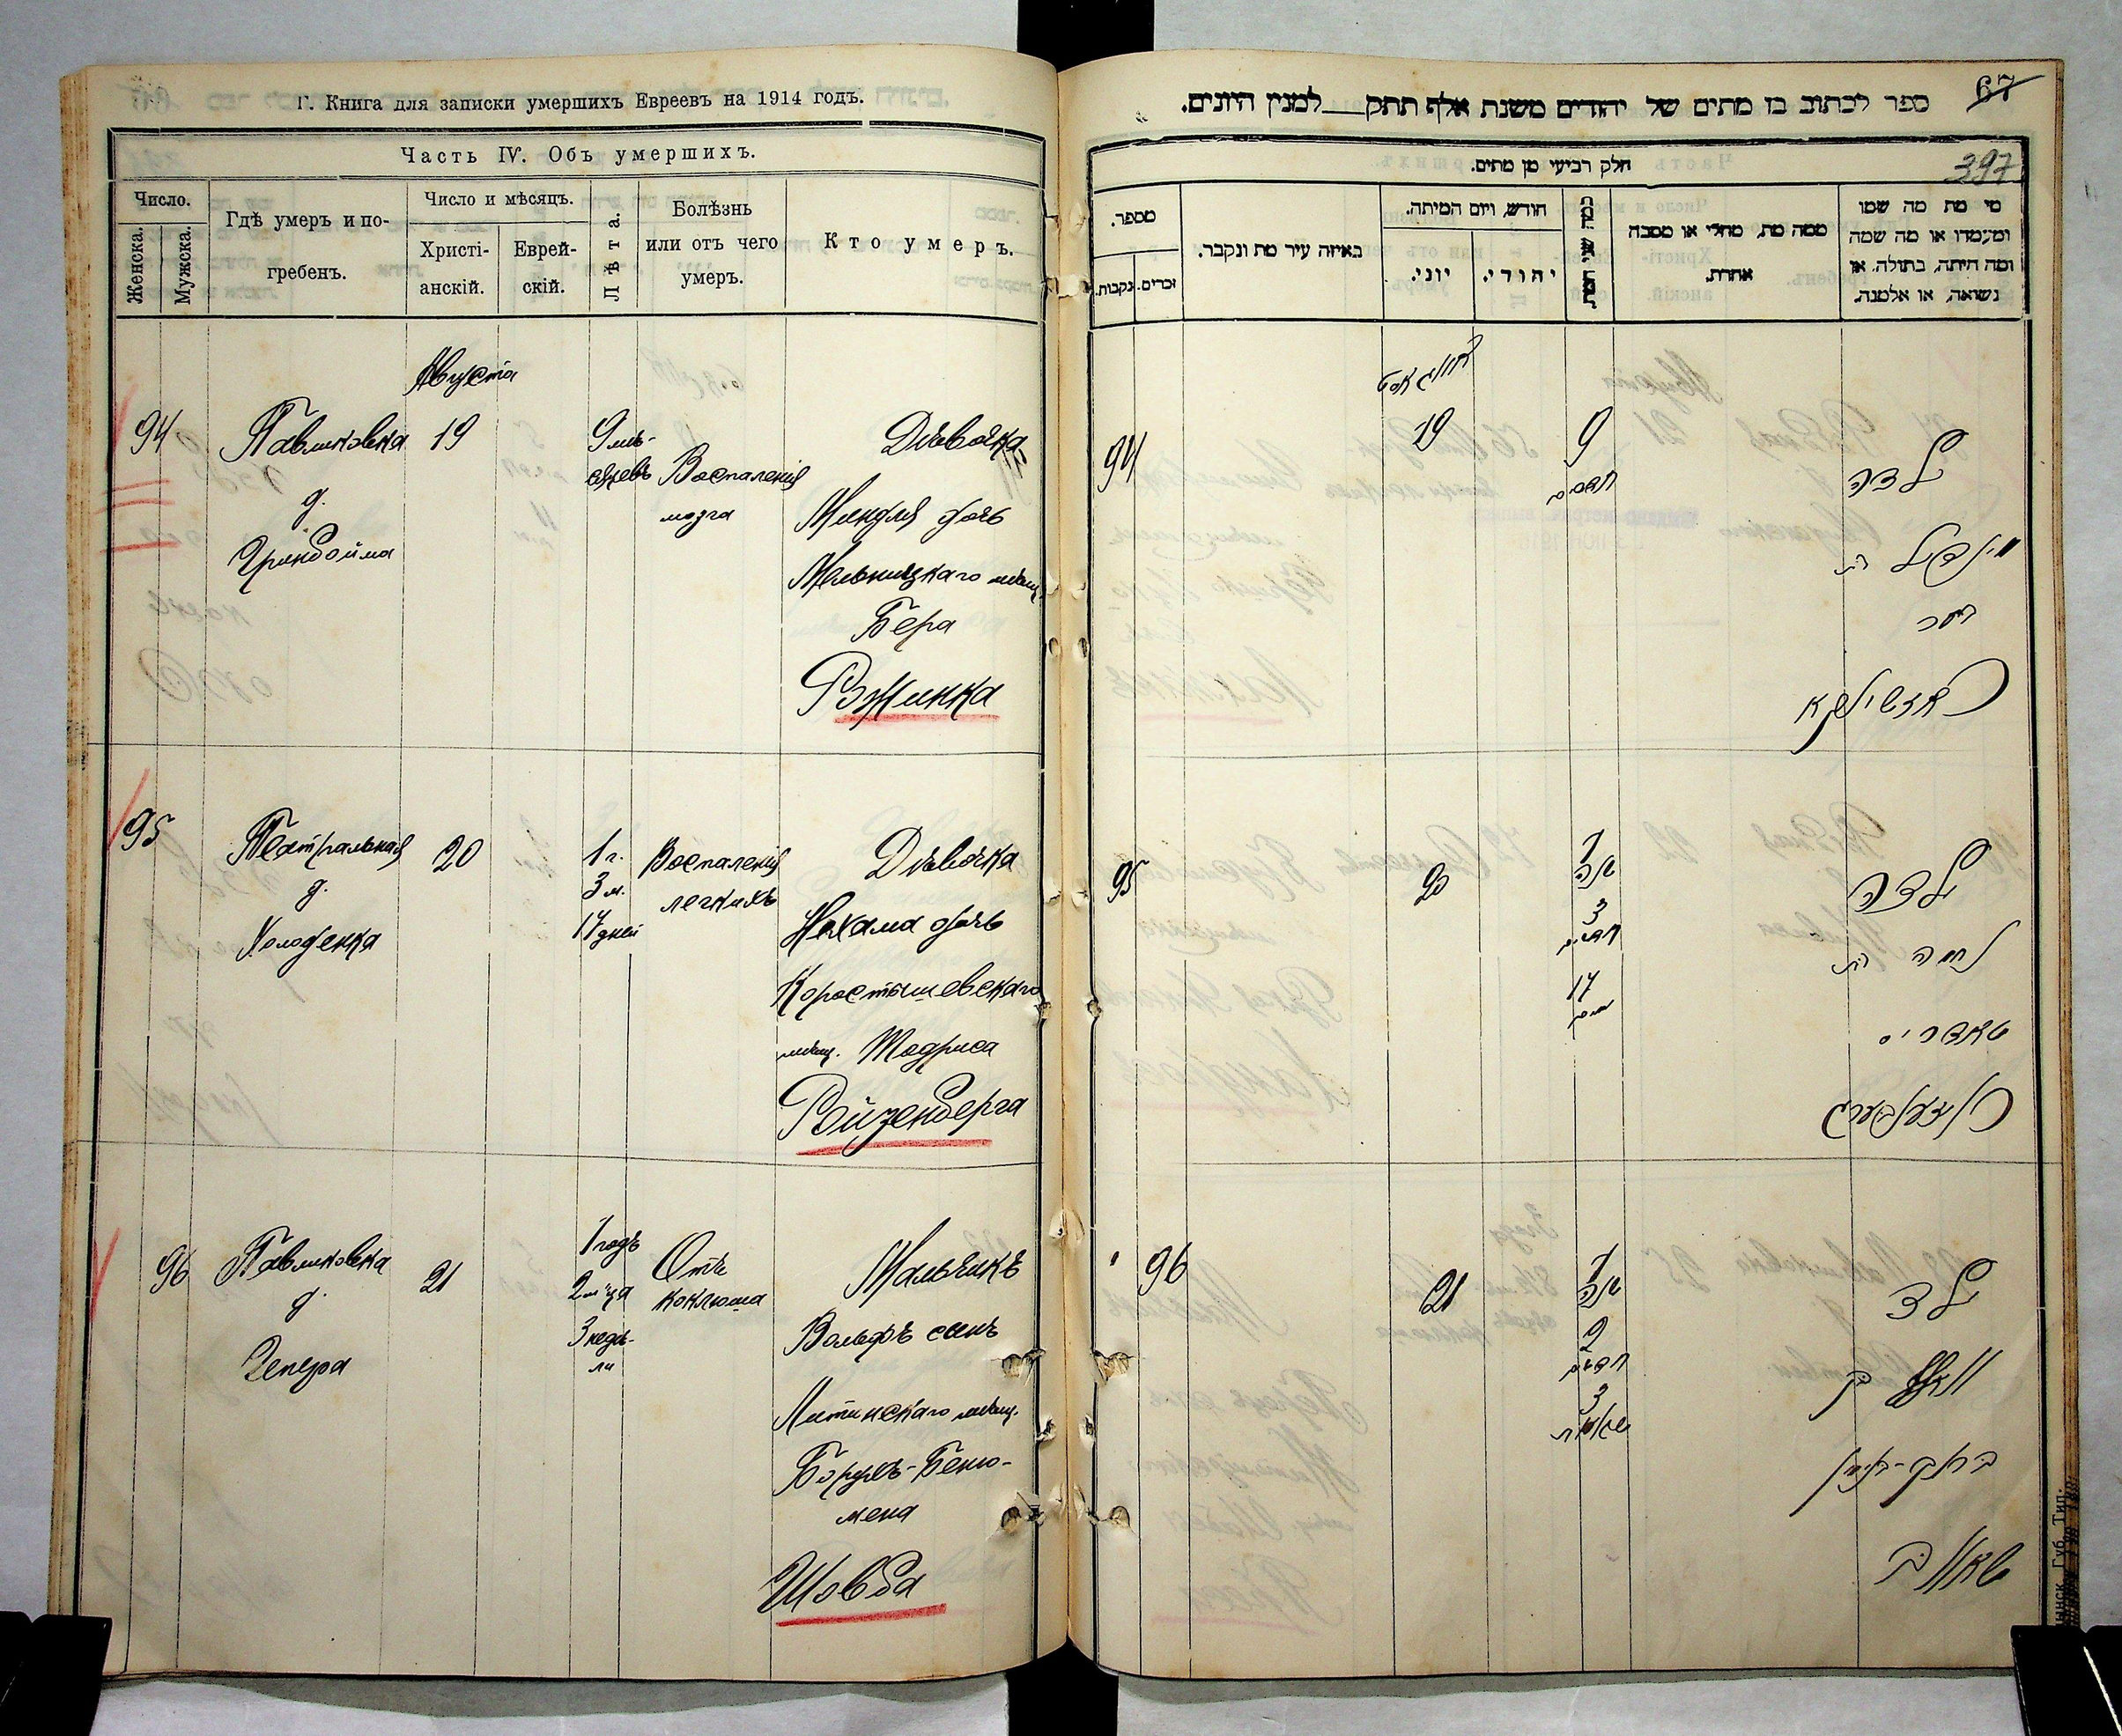 Г. Книга для записки умершихъ Евреевъ на 1914 годъ.
Часть IV. Объ умершихъ.
Число.
Женска.
Мужска.
Гдѣ умеръ и по-
гребенъ.
Число и мѣсяцъ.
Христі-
анскій.
Еврей-
скій.
Лѣта.
Болѣзнь
или отъ чего
умеръ.
Кто умеръ.
Августа
94
Павликовка
д.
Гринбойма
19
9 мѣ-
сяцевъ
Воспаленія
мозга
Дѣвочка
Миндля дочь
Мельницкаго мѣщ.
Бера
Рзжинка
95
Театральная
д.
Холоденка
20
1 г.
3 м.
17 дней
Воспаленія
легкихъ
Дѣвочка
Нехама дочь
Коростышевскаго
мѣщ. Тодриса
Ройзенберга
96
Павликовка
д.
Чепера
21
1 годъ
2 м-ца
3 недѣ-
ли
Отъ
коклюша
Мальчикъ
Вольфъ сынъ
Литинскаго мѣщ.
Борухъ-Беню-
мена
Шовба
67
ספר לכתוב בו מתים של יהודים משנת אלף תתק__למנין היונים.
397
חלק רביעי מן מתים.
מספר.
זכרים.
נקבות.
באיזה עיר מת ונקבר.
חודש, ויום המיתה.
יוני.
יהודי.
כמה שני חייו
ממה מת, מחלי או מסבה
אחרת.
מי מת מה שמו
ומעמדו או מה שמה
ומה היתה, בתולה, או
נשואה, או אלמנה.
94
19
9
חדשים
ילדה
מינדיל בת
בער
95
20
1
שנה
3
חדשים
17
ימים
ילדה
נחמה בת
טאדריס
רויזענבערג
96
21
1
שנה
2
חדשים
3
שבועות
ילד
וואלף בן
ברוך-בנימין